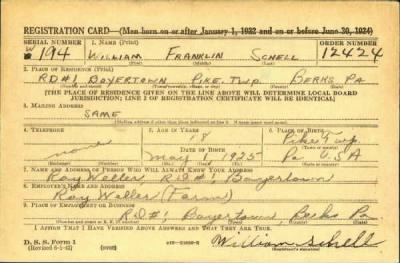 REGISTRATION CARD—(Men born on or after January 1, 1922 and on or before June 30, 1924)
SERIAL NUMBER 1. NAME (Print) ORDER NUMBER
W 194 WILLIAM FRANKLIN SCHELL 12424
(First) (Middle) (Last)
2. PLACE OF RESIDENCE (Print)
RD#1, BOYERTOWN PIKE. TWP. BERKS PA
(Number and street) (Town, township, village, or city) (County) (State)
[THE PLACE OF RESIDENCE GIVEN ON THE LINE ABOVE WILL DETERMINE LOCAL BOARD
JURISDICTION; LINE 2 OF REGISTRATION CERTIFICATE WILL BE IDENTICAL]
3. MAILING ADDRESS
SAME
[Mailing address if other than place indicated on line 2. If same insert word same]
4. TELEPHONE 5. AGE IN YEARS 6. PLACE OF BIRTH
none 18 Pike Twp.
DATE OF BIRTH (Town or county)
May 1925 Pa USA
(Exchange) (Number) (Mo.) (Day) (Yr.) (State or country)
7. NAME AND ADDRESS OF PERSON WHO WILL ALWAYS KNOW YOUR ADDRESS
Ray Weller, R.D.#1, Boyertown
8. EMPLOYER'S NAME AND ADDRESS
Ray Weller (Farm)
9. PLACE OF EMPLOYMENT OR BUSINESS
R.D.#1, Boyertown, Berks Pa.
(Number and street or R. F. D. number) (Town) (County) (State)
I AFFIRM THAT I HAVE VERIFIED ABOVE ANSWERS AND THAT THEY ARE TRUE.
D. S. S. Form 1
(Revised 6-1-42) (over) William Schell
(Registrant's signature)